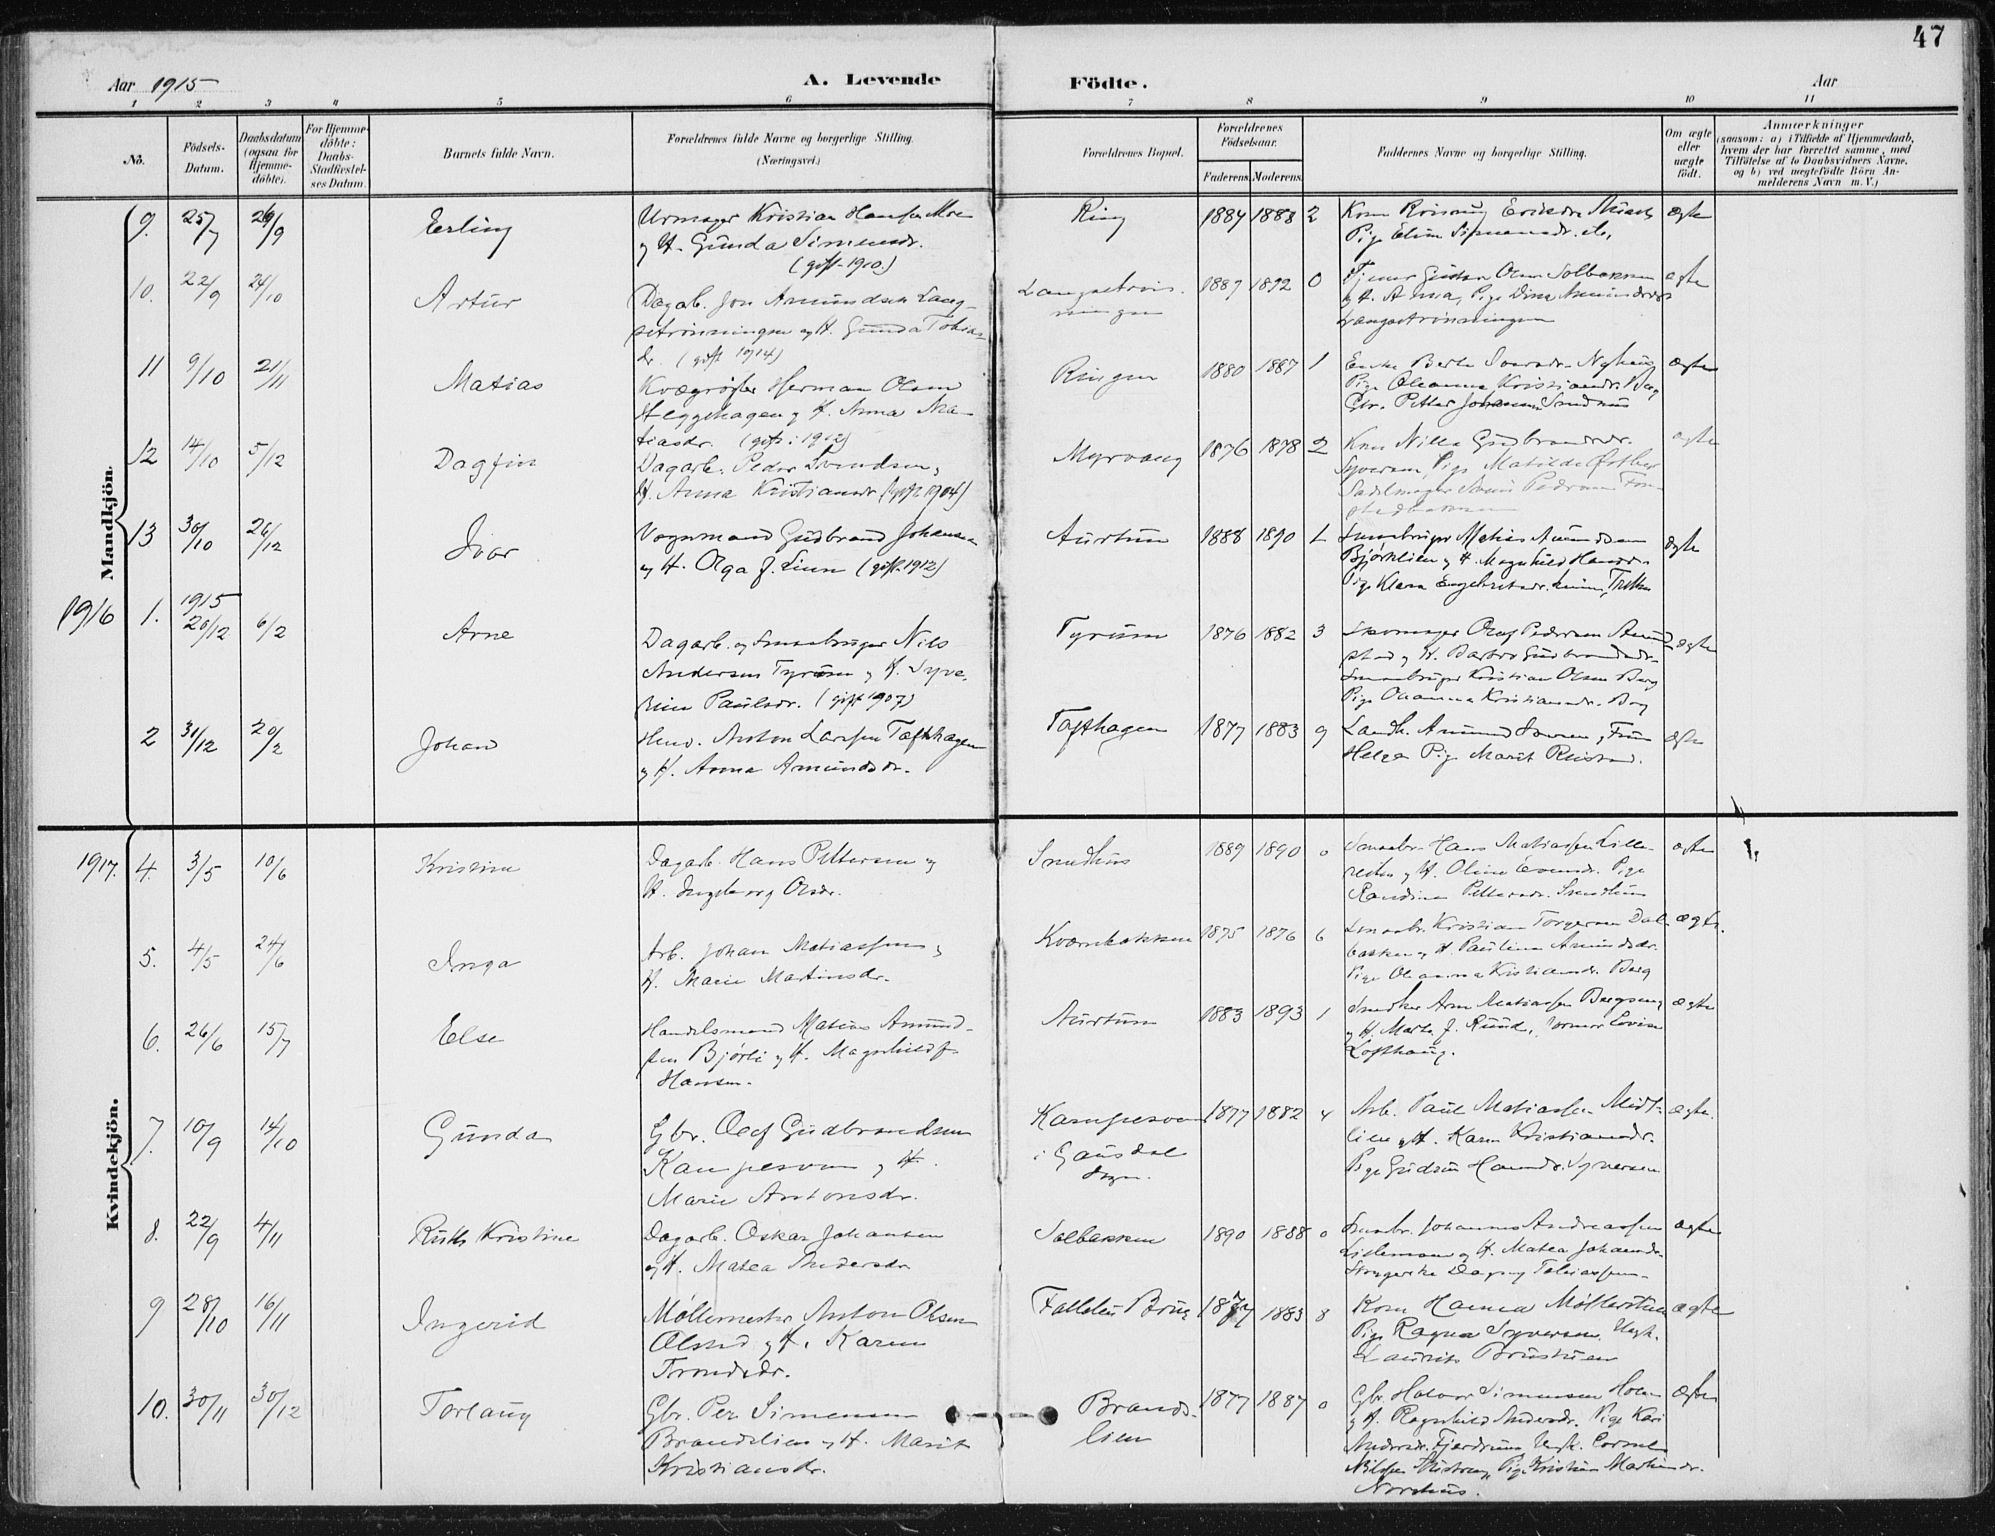 47
Aar 1915
A. Levende Födte.
Aar
1 2 3 4 5 6 7 8 9 10 11
No.
Födsels-Datum.
Daabsdatum (ogsaa for Hjemme-döbte).
For Hjemme-döbte: Daabs-Stadfæstel-ses Datum.
Barnets fulde Navn.
Forældrenes fulde Navne og borgerlige Stilling.
(Næringsvei.)
Forældrenes Bopæl.
Forældrenes Födselsaar.
Faderens. Moderens.
Faddernes Navne og borgerlige Stilling.
Om ægte eller uægte födt.
Anmærkninger
(saasom: a) i Tilfælde af Hjemmedaab, hvem der har forrettet samme, med Tilföielse af to Daabsvidners Navne, og b) ved uægtefödte Börn An-melderens Navn m. V.)
Mandkjön.
9. 25/7 26/9 Erling
Urmager Kristian Hansen Moe
og H. Gunda Simensdr.
(gift 1910.)
Ring 1884 1888 2
ægte
10. 22/9 24/10 Artur
Dagarb. Jon Amundsen Lang-
setrønningen og H. Gunda Tobias-
dr. (gift 1914)
1889 1892 0
og H. Anna, Pige Dina Amundsdr
Langsetrønningen
ægte
11 9/10 21/11 Matias
Kvægrøgter Herman Olsen
Heggehagen og H. Anna Ma-
tiasdr. (gift: 1912)
Ringen 1880 1887 1
Enke Berte
Pige Oleanna Kristiansdr. Berg
Gbr. Petter Johansen Snudhus
ægte
12 14/10 5/12 Dagfin
Dagarb. Peder Svendsen og
H. Anna Kristiansdr (gift 1904)
Myrvang 1876 1878 2
Kone Nilla Gudbrandsdr.
Syversen, Pige Matilde Østber
ægte
13 30/10 26/12 Ivar
Vognmand Gudbrand Johansen
og H. Olga J. Lien (gift. 1912)
Aurtun 1888 1890 1
Smaabruger Matias Amundsen
Bjørklien og H. Magnhild Hansdr.
Pige Klara Engebretsdr.
ægte
1916 1. 1915 20/12 6/2 Arne
Dagarb. og Smaabruger Nils
Andersen Tyrum og H. Syve-
rine Paulsdr. (gift 1907)
Tyrum 1876 1882 3
Skomager Olaf Pedersen Amund-
stad og H. Barbro Gudbrandsdr.
Smaabruger Kristian Olsen Berg
Pige Oleanna Kristiansdr. Berg
ægte
2 31/12 20/2 Johan
Anton Larsen Tofthagen
og H. Anna Amundsdr.
Tofthagen 1877 1883 9
Landh. Amund Iversen, Frue
Helga Pige Marit Reistad.
ægte
Kvindekjön.
1917. 4. 3/5 10/6 Kristine
Dagarb. Hans Pettersen og
H. Ingeborg Olsdr.
Snudhus 1889 1890 0
Smaabr. Hans Matiassen Lille-
og H. Oline Evensdr. Pige
Randine Pettersdr. Snudhus
ægte
5. 4/5 24/6 Inga
Arb. Johan Matiassen og
H. Marie Martinsdr.
Kværnbakken 1875 1876 6
Smaabr. Kristian Torgersen Dal-
bakken og H. Pauline Amundsdr.
Pige Oleanna Kristiansdr. Berg
ægte.
6. 26/6 15/7 Else
Handelsmand Matias Amund-
sen Bjørli og H. Magnhild f.
Hansen.
Aurtun 1883 1893 1
Snedker Arne Matiassen Bergseng
og H. Marte J. Ruud, Jomfr Lovise
Lofthaug.
ægte
7. 10/9 14/10 Gunda
Gbr. Olof Gudbrandsen
Kampesveen og H.
Marie Antonsdr.
Kampesveen
i Gausdal
1877 1882 4
Arb. Paul Matiassen Midt-
lien og H. Karen Kristiansdr.
Pige Gudrun Hansdr. Syversen
ægte.
8. 22/9 4/11 Ruth Kristine
Dagarb. Oskar Johansen
og H. Matea Andersdr
Solbakken 1890 1888 0
Smaabr. Johannes Andreassen
og H. Matea Johansdr.
Dagny Tobiassen.
ægte
9 28/10 16/11 Ingerid
Møllemester Anton Olsen
Olstad og H. Karen
Trondsdr.
Brug 1877 1883 8
Kone Hanna Møllerstuen
Pige Ragna Syversen. Ungk.
Laurits Brustuen
ægte
10. 30/11 30/12 Torlaug
Gbr. Per Simensen
Brandslien og H. Marit
Kristiansdr.
Brands-
lien
1877 1887 0
Gbr. Halvor Simensen Holen
og H. Ragnhild Andersdr. Pige Kari
Andersdr. Fjerdrum Ungk.
Pige Kristine Martinsdr.
Nordhus.
ægte